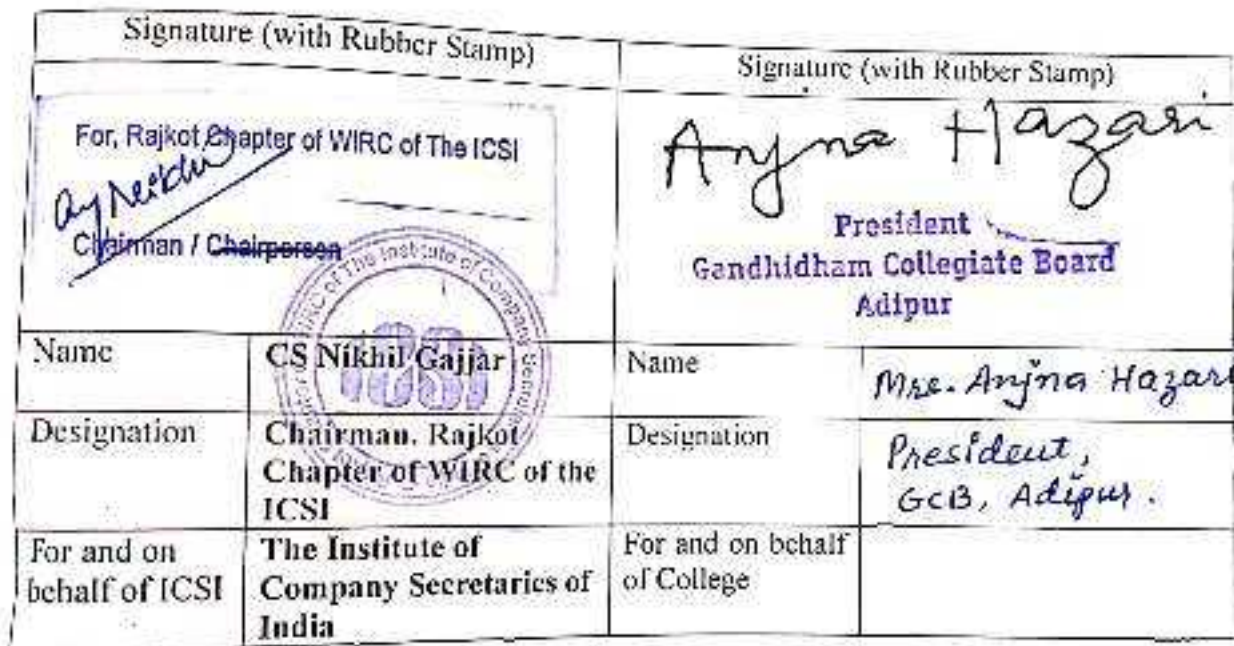 Signature (with Rubber Stamp)
Signature (with Rubber Stamp)
For, Rajkot Chapter of WIRC of The ICSI
Chairman / Chairperson
Anjna Hazari
President
Gandhidham Collegiate Board
Adipur
WIRC of The Institute of Company Secretaries
Name
CS Nikhil Gajjar
Name
Mrs. Anjna Hazari
Designation
Chairman. Rajkot
Chapter of WIRC of the
ICSI
Designation
President,
GCB, Adipur.
For and on
behalf of ICSI
The Institute of
Company Secretaries of
India
For and on behalf
of College